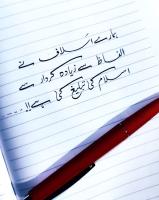 ہمارے اسلاف نے
الفاظ سے زیادہ کردار سے
اسلام کی تبلیغ کی ہے!!...